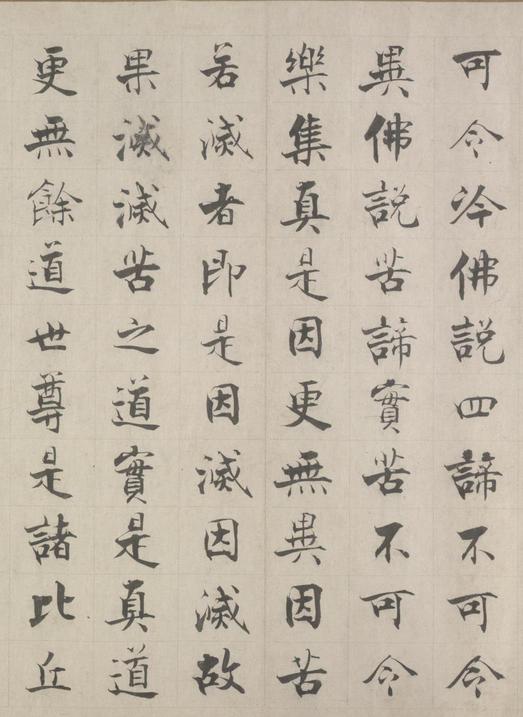 可令冷佛說四諦不可令
異佛說苦諦實苦不可令
樂集真是因更無異因苦
若滅者即是因滅因滅故
果滅滅苦之道實是真道
更無餘道世尊是諸比丘